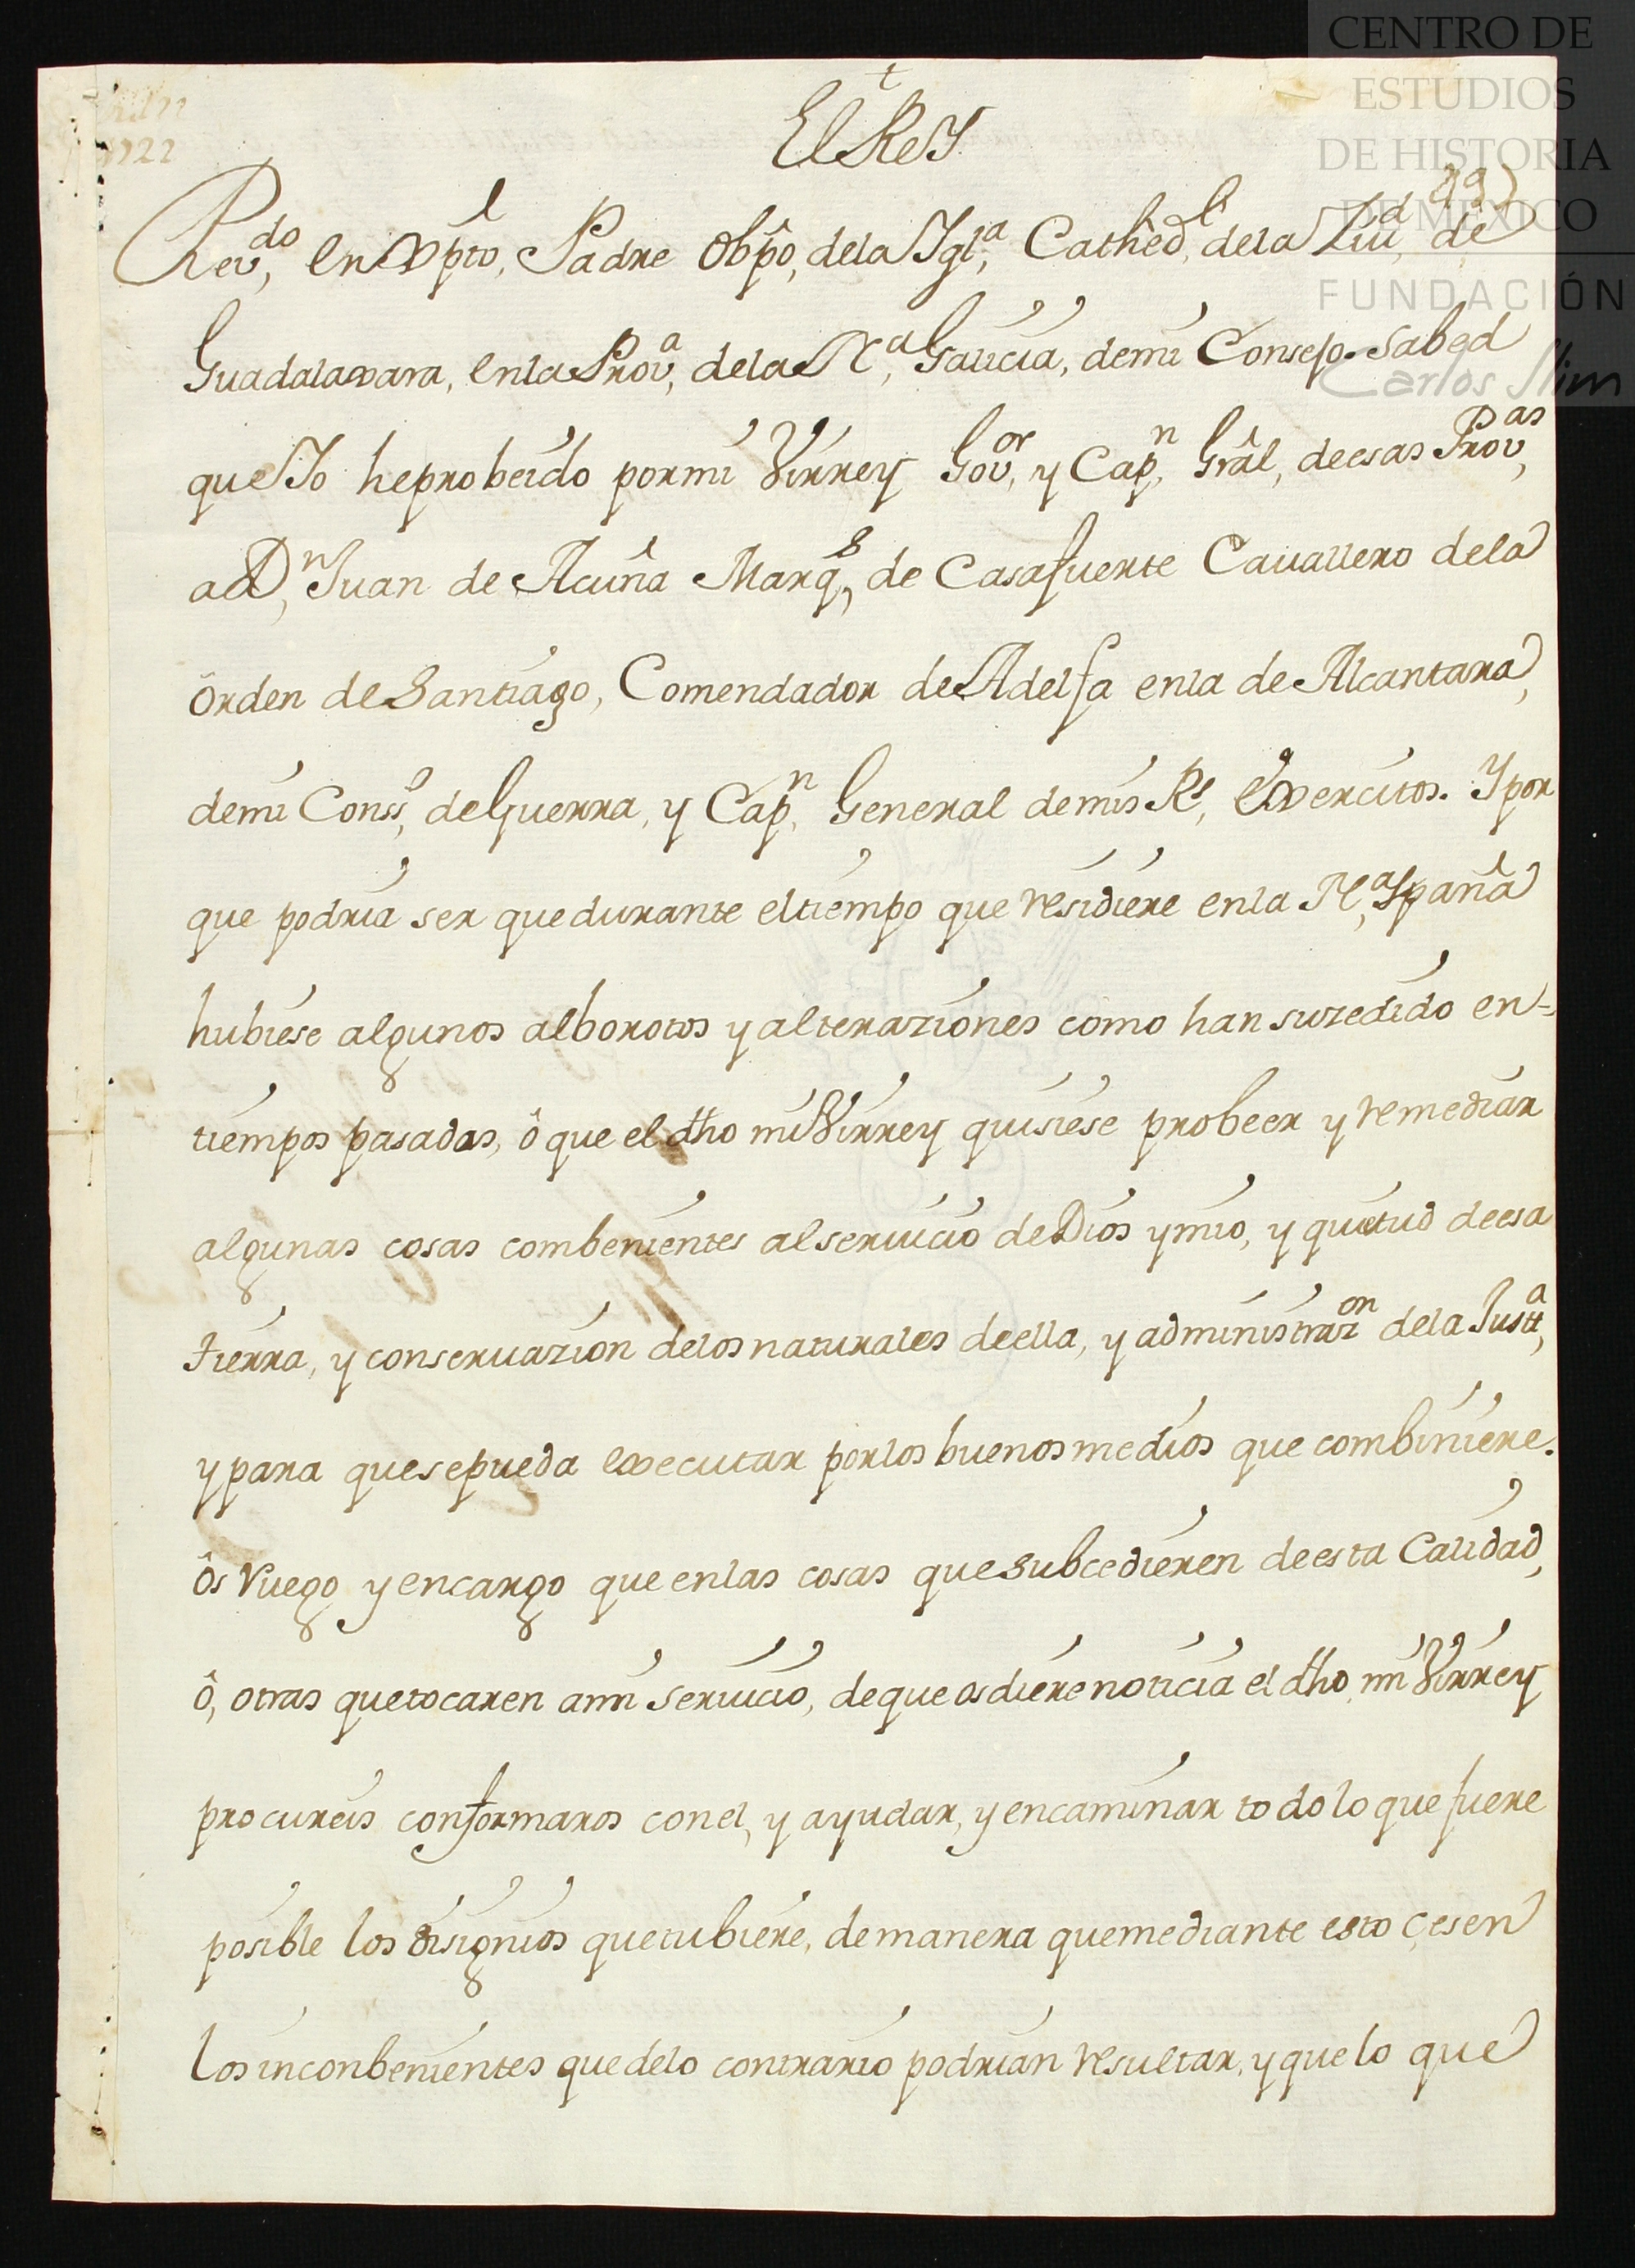 CENTRO DE
ESTUDIOS
DE HISTORIA
DE MÉXICO
FUNDACIÓN
Carlos Slim
1722
El Rey
Revdo, en Xpto, Padre Obpo, dela Igla, Cathedl, dela Ziud de
Guadalaxara, enla Prova, dela Na, Galicia, demi Consejo. Sabed
que Yo heprobeido pormi Virrey Govor, y Capn, Gral, deesas Provas,
a Dn, Juan de Acuña Marqs, de Casafuerte Cauallero dela
ôrden de Santiago, Comendador de Adelfa enla de Alcantara,
demi Conso, de Guerra, y Capn, General demis Rs, Exercitos. Y por
que podria ser quedurante eltiempo que residiere enla Na, España
hubiese algunos alborotos y alteraziones como han suzedido en=
tiempos pasados, ô que el dho mi Virrey quisiese probeer y remediar
algunas cosas combenientes alseruicio de Dios ymio, y quietud deesa
tierra, y conseruazion delos naturales deella, y administrazon dela Justa,
y para quesepueda executar porlos buenos medios que combiniere.
ôs ruego y encargo que enlas cosas que subcedieren deesta Calidad,
ô, otras quetocaren ami seruicio, deque osdiere noticia el dho mi Virrey
procureis conformaros conel, y ayudar, y encaminar todo lo que fuere
posible los disignios quetubiere, demanera quemediante esto çesen
los inconbenientes quedelo contrario podrian resultar, y que lo que